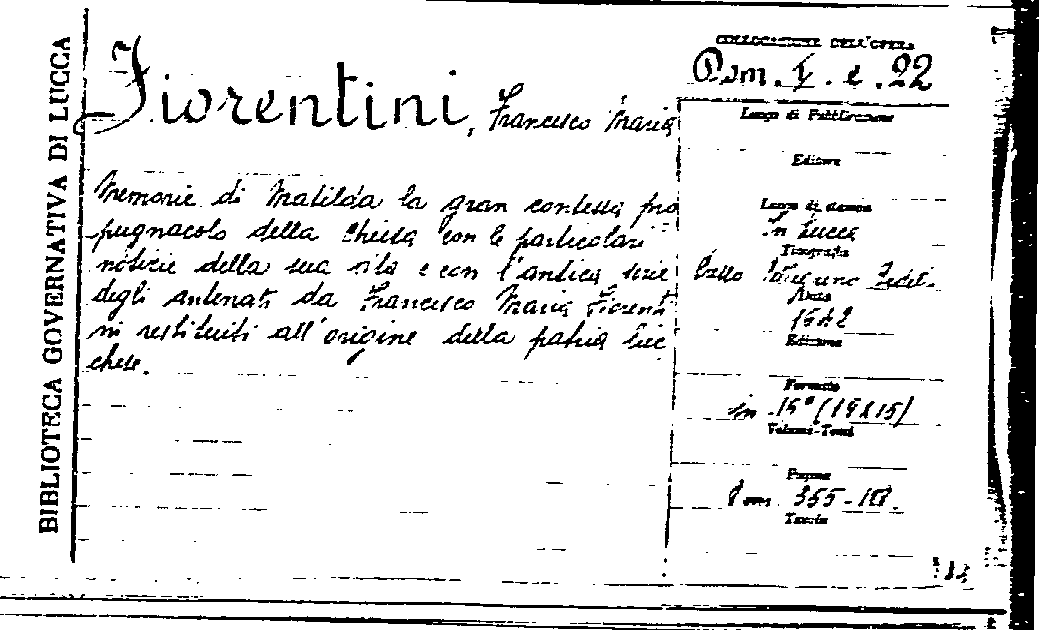 BIBLIOTECA GOVERNATIVA DI LUCCA
Fiorentini, Francesco Maria
Memorie di Matilda la gran contessa pro
pugnacolo della chiesa con le particolari
notizie della sua vita e con l'antica serie
degli antenati da Francesco Maria Fiorenti
ni restituiti all'origine della patria luc
chese.
COLLOCAZIONE DELL'OPERA
22
Luogo di Pubblicazione
Editore
Luogo di stampa
In Lucca
Tipografia
Anno
1642
Edizione
Formato
in (19x15)
Volumi-Tomi
Pagine
355
Tavole